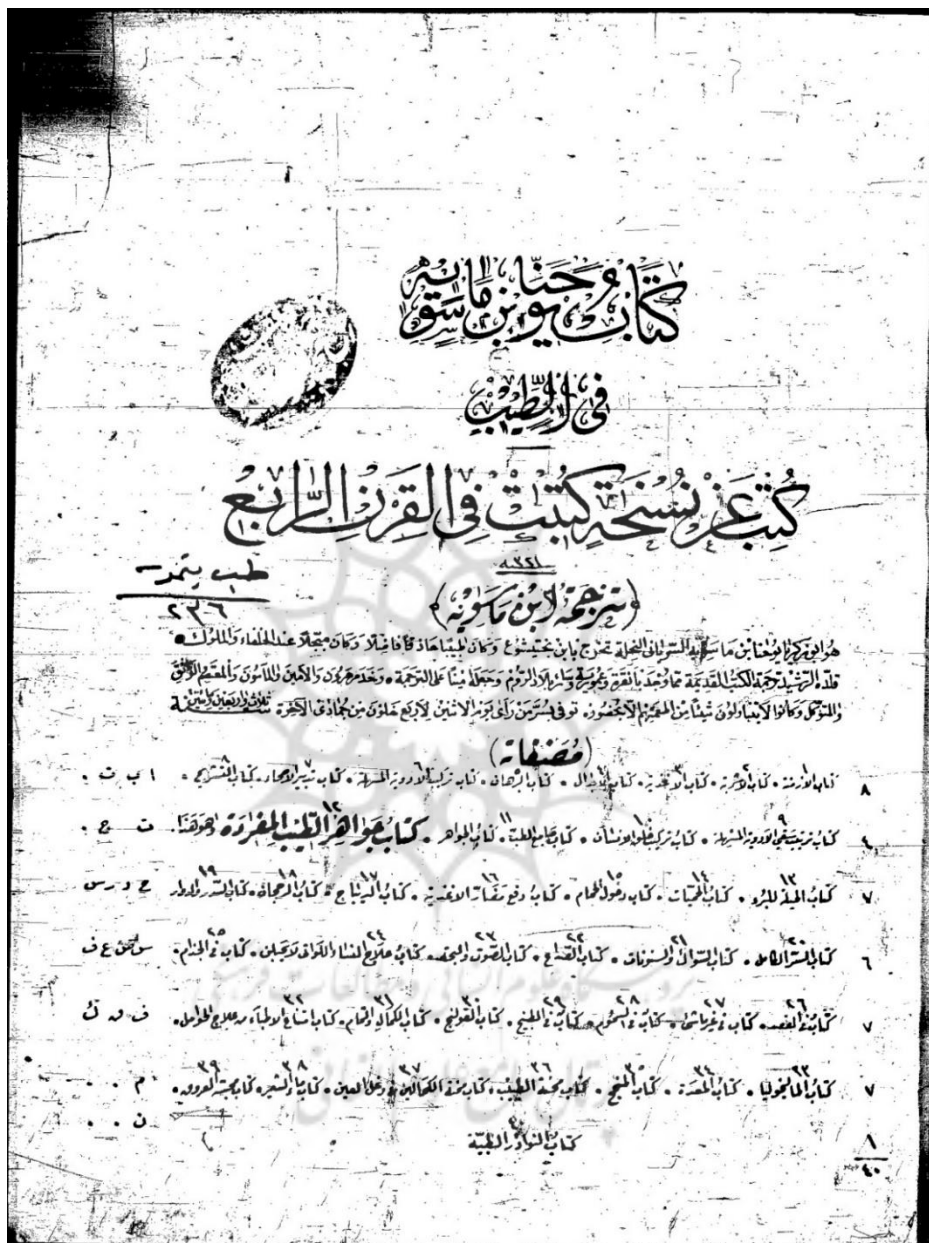 كتاب يوحنا بن ماسويه
في الطيب
كتب عن نسخة كتبت في القرن الرابع
سنة ٣٢١
طب تيمور
٢٣٦
(ترجمة ابن ماسويه)
هو ابو زكريا يوحنا بن ماسويه السرياني النحلة تخرج بابن بختيشوع وكان طبيبا حاذقا فاضلا وكان مبجلا عند الخلفاء والملوك
قلده الرشيد ترجمة الكتب القديمة مما وجد بأنقرة وعمورية وسائر بلاد الروم وجعله أمينا على الترجمة وخدم هرون والامين والمأمون والمعتصم والواثق
والمتوكل وكانوا لا يتناولون شيئا من اطعمتهم الا بحضوره توفى بسر من رأى يوم الاثنين لاربع خلون من جمادى الآخرة ثلاث واربعين ومائتين
(مصنفاته)
كتاب الأزمنة كتاب الأشربة كتاب الاغذية كتاب الابدال كتاب تركيب الادوية المسهلة كتاب تدبير الاصحاء كتاب التشريح ا ب ت ٨
كتاب ترتيب سقي الادوية المسهلة كتاب تركيب خلق الانسان كتاب جامع الطب كتاب الجواهر كتاب جواهر الطيب المفردة وهو هذا ت ج ٤
كتاب الحيلة للبرء كتاب الحميات كتاب دخول الحمام كتاب دفع مضار الاغذية كتاب الديباج كتاب الرجحان كتاب السدر والدوار ح د ر س ٧
كتاب السر الكامل كتاب السواك والسنونات كتاب الصداع كتاب الصوت والبحة كتاب علاج النساء اللواتي لا يحبلن كتاب في الجذام س ص ع ف ٦
كتاب في الفصد كتاب في السموم كتاب في الطبيخ كتاب القولنج كتاب الكمال والتمام ف ق ك ٧
كتاب المالنخوليا كتاب المعدة كتاب المنجح كتاب محنة الطبيب كتاب معرفة الكحالين كتاب ماء الشعير كتاب مجسة العروق م ٧
كتاب النوادر الطبية ن ١
٤٠